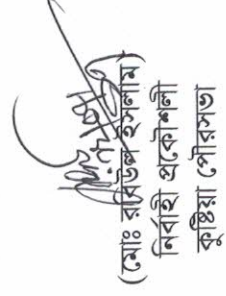 (মোঃ রবিউল ইসলাম)
নির্বাহী প্রকৌশলী
কুষ্টিয়া পৌরসভা